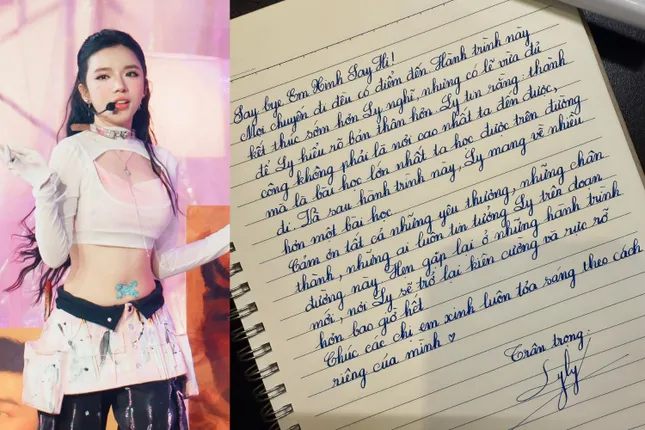 Say bye Em Xinh Say Hi!
Mọi chuyến đi đều có điểm đến. Hành trình này
kết thúc sớm hơn Ly nghĩ, nhưng có lẽ vừa đủ
để Ly hiểu rõ bản thân hơn. Ly tin rằng: thành
công không phải là nơi cao nhất ta đến được,
mà là bài học lớn nhất ta học được trên đường
đi. Và sau hành trình này, Ly mang về nhiều
hơn một bài học.
Cảm ơn tất cả những yêu thương, những chân
thành, những ai luôn tin tưởng Ly trên đoạn
đường này. Hẹn gặp lại ở những hành trình
mới, nơi Ly sẽ trở lại kiên cường và rực rỡ
hơn bao giờ hết
Chúc các chị em xinh luôn tỏa sáng theo cách
riêng của mình ♡
Trân trọng:
Lyly